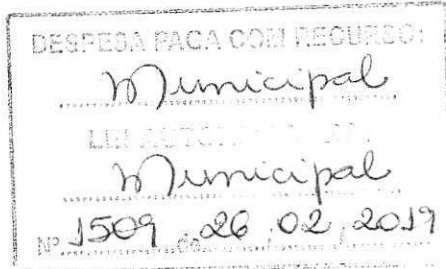 DESPESA PAGA COM RECURSO:
Municipal
LEI
Municipal
Nº 1509 de 26 . 02 . 2019